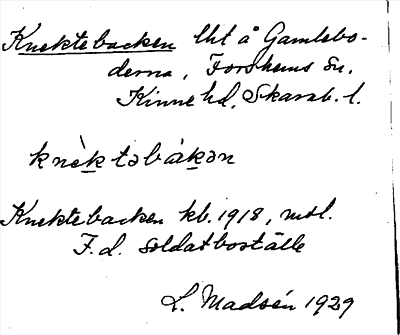 Knektebacken lht å Gamlebo-
derna, Forshems Sn.
Kinne hd, Skarab. l.
knèktəbàkən
Knektebacken kb. 1918, mtl.
F.d. soldatboställe
L. Madsén 1929